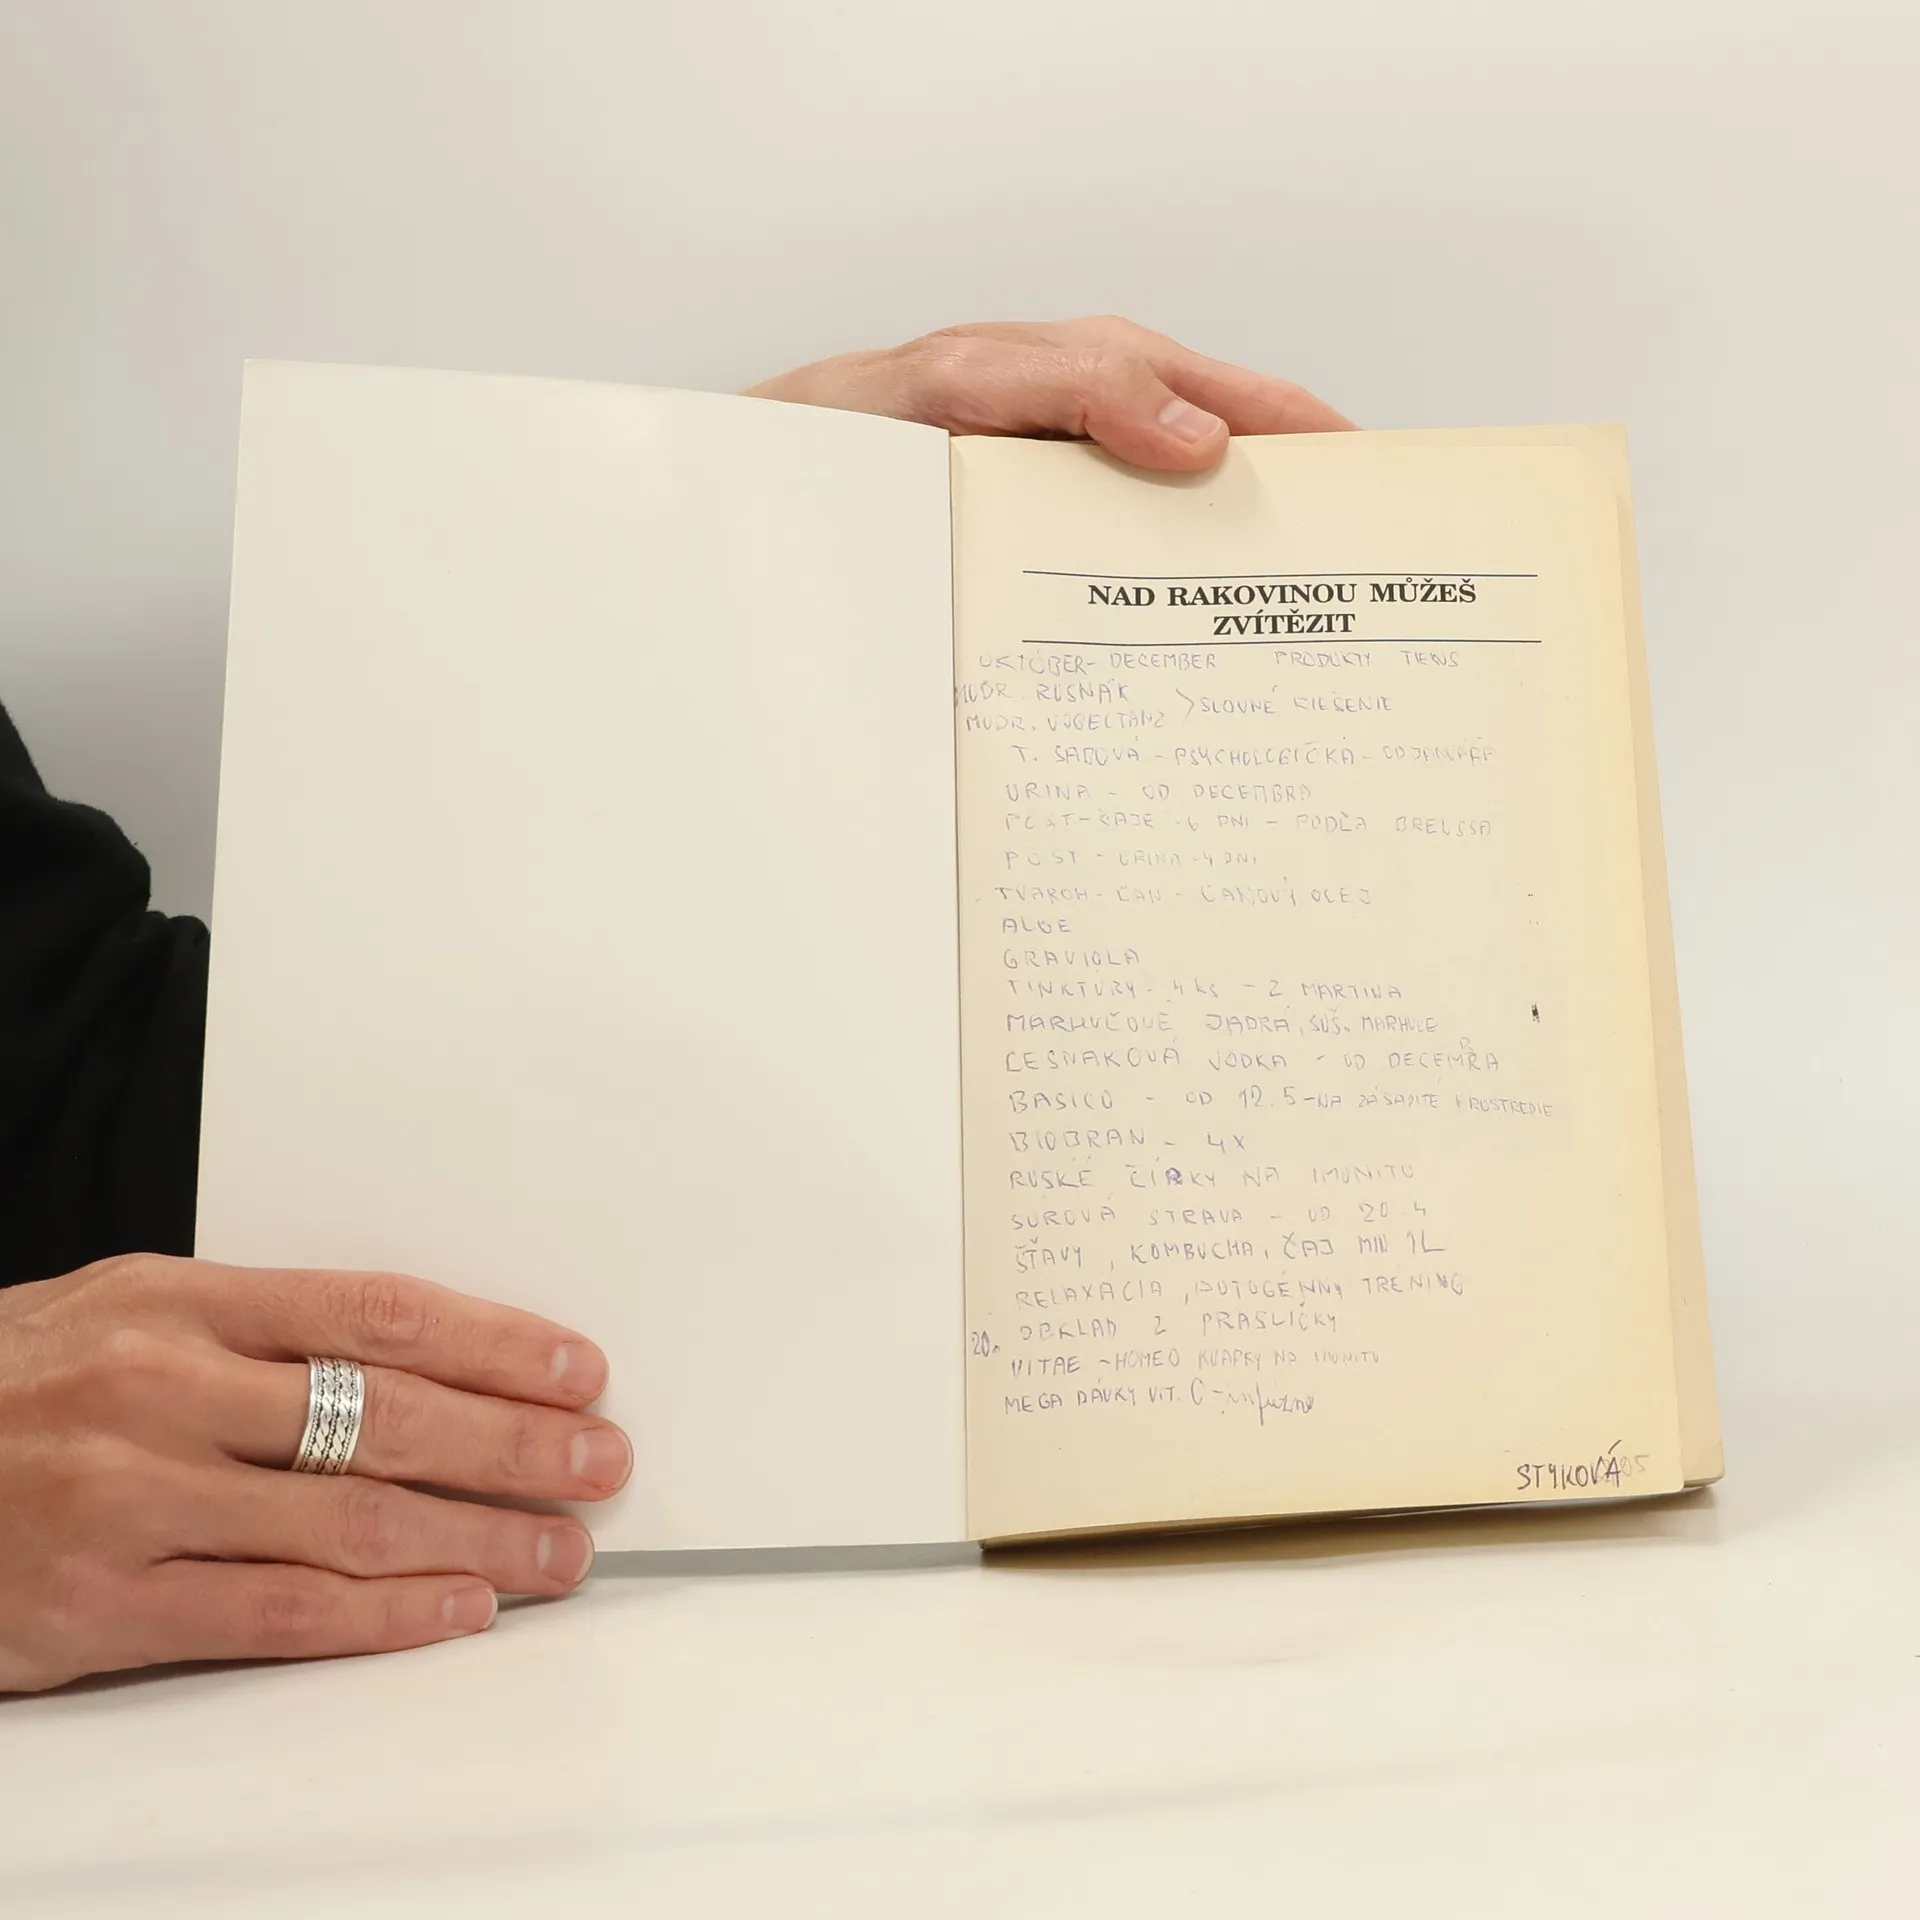 NAD RAKOVINOU MŮŽEŠ
ZVÍTĚZIT
OKTÓBER - DECEMBER PRODUKTY TIENS
MUDR. RUSNÁK
MUDR. VOGELTANZ > SLOVNÉ RIEŠENIE
T. SABOVÁ - PSYCHOLOGIČKA - OD
URINA - OD DECEMBRA
POST - ČAJE - 6 DNI - PODĽA BREUSSA
POST - URINA - 4 DNI
TVAROH - ĽAN - ĽANOVÝ OLEJ
ALOE
GRAVIOLA
TINKTÚRY - 4 ks - Z MARTINA
MARHUĽOVÉ JADRÁ, SUŠ. MARHULE
CESNAKOVÁ VODKA - OD DECEMBRA
BASICO - OD 12.5 - NA ZÁSADITÉ PROSTREDIE
BIOBRAN - 4X
RUSKÉ ČÍPKY NA IMUNITU
SUROVÁ STRAVA - OD 20.4
ŠŤAVY, KOMBUCHA, ČAJ MIN 1L
RELAXACIA, AUTOGÉNNY TRÉNING
20. OBKLAD Z PRASLIČKY
VITAE - HOMEO KVAPKY NA IMUNITU
MEGA DÁVKY VIT. C - infuzne
STYKOVÁ